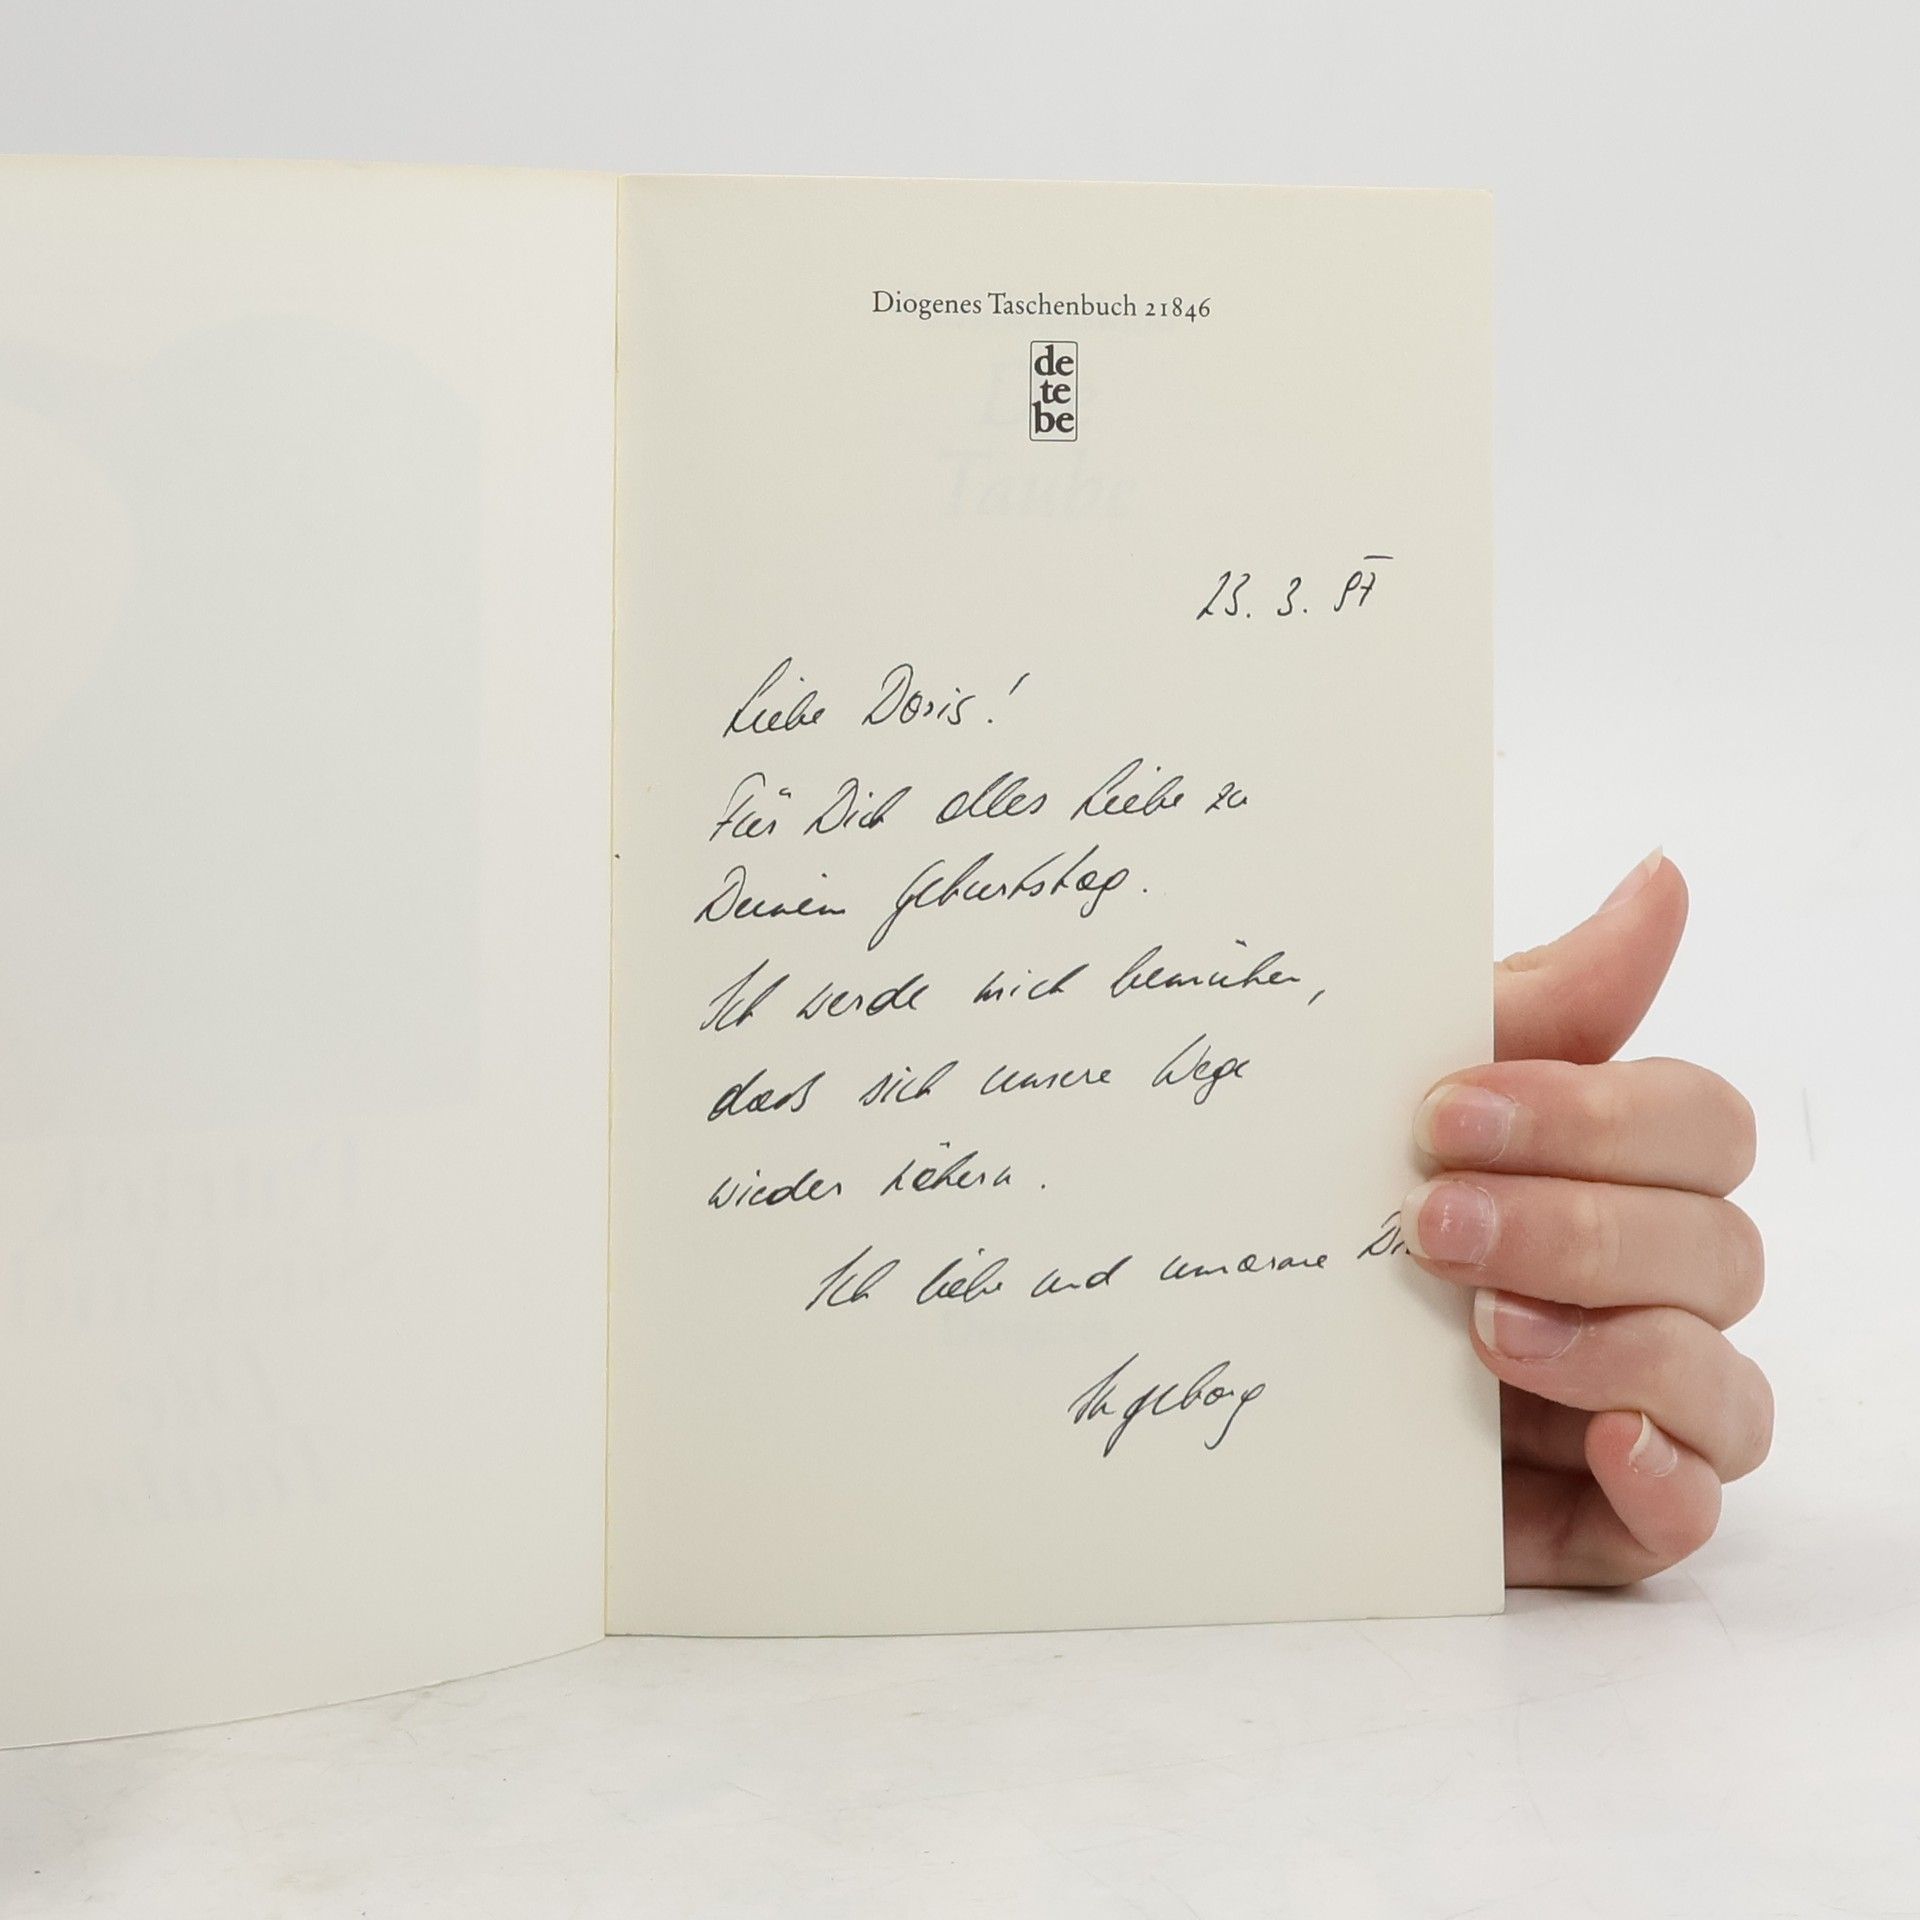 Diogenes Taschenbuch 21846
de
te
be
Die
Taube
23. 3. 97
Liebe Doris!
Für Dich alles Liebe zu
Deinem Geburtstag.
Ich werde mich bemühen,
daß sich unsere Wege
wieder nähern.
Ich liebe und umarme Di
Ingeborg